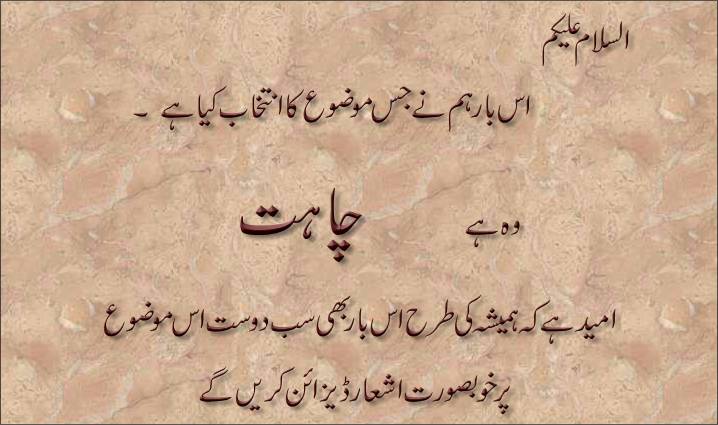 السلام علیکم
اس بار ہم نے جس موضوع کا انتخاب کیا ہے ۔
وہ ہے چاہت
امید ہے کہ ہمیشہ کی طرح اس بار بھی سب دوست اس موضوع
پر خوبصورت اشعار ڈیزائن کریں گے